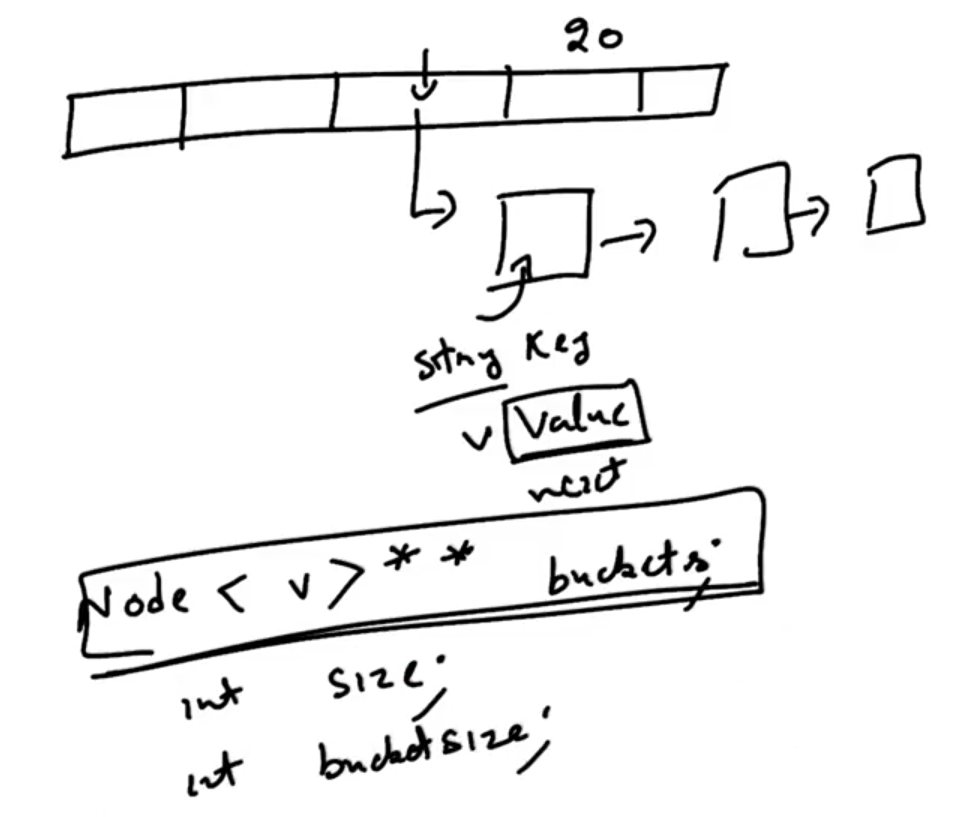 20
string Key
V Value
next
Node < V > * * buckets;
int size;
int bucketsize;